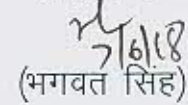 7/6/18
(भगवत सिंह)